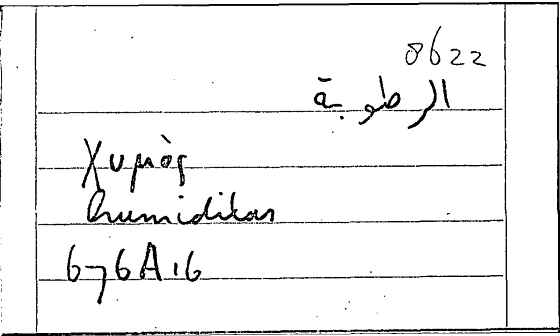 0622
الرطوبة
χυμὸς
humiditas
676A16